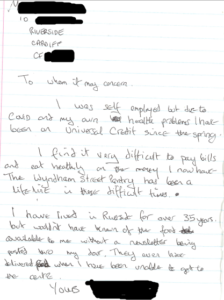 10
RIVERSIDE
CARDIFF
CF
To whom it may concern.
I was self employed but due to
Covid and my own health problems I have
been on Universal Credit since the spring.
I find it very difficult to pay bills
and eat healthily on the money I now have
The Wyndham Street Pantry has been a
lifeline in these difficult times.
I have lived in Riverside for over 35 years
but wouldn't have known of the food
available to me without a newsletter being
posted through my door. They even have
delivered when I have been unable to get to
the centre.
Yours